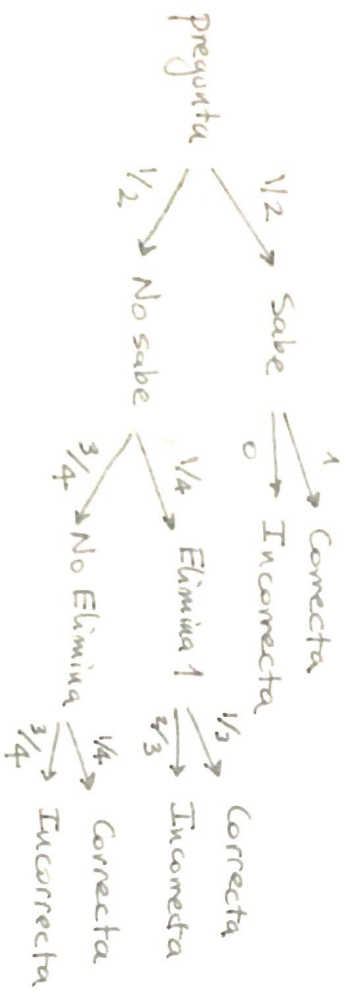 Pregunta
1/2
Sabe
1
Correcta
0
Incorrecta
1/2
No sabe
1/4
Elimina 1
1/3
Correcta
2/3
Incorrecta
3/4
No Elimina
1/4
Correcta
3/4
Incorrecta